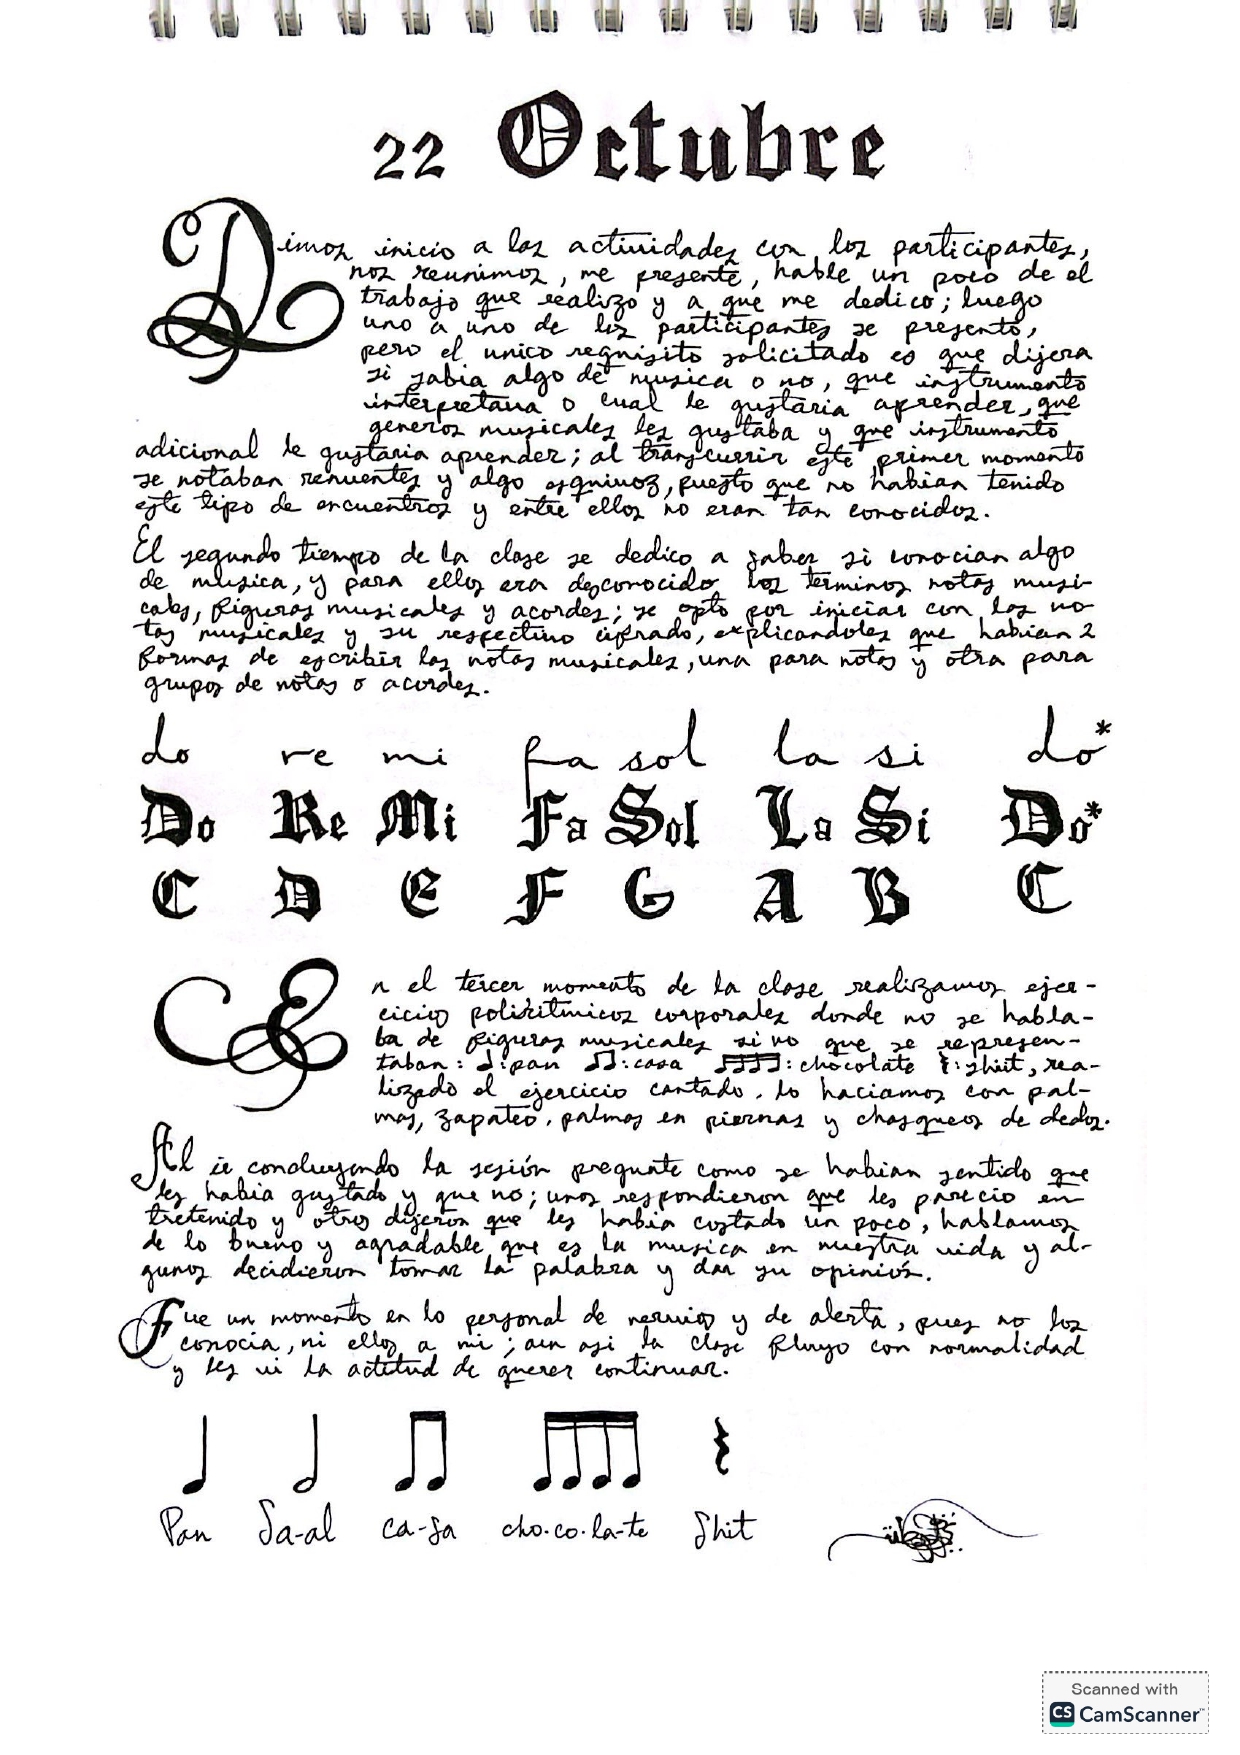 22 Octubre
Dimos inicio a las actividades con los participantes,
nos reunimos, me presente, hable un poco de el
trabajo que realizo y a que me dedico; luego
uno a uno de los participantes se presento,
pero el unico requisito solicitado es que dijera
si sabia algo de musica o no, que instrumento
interpretava o cual le gustaria aprender, que
generos musicales les gustaba y que instrumento
adicional le gustaria aprender; al transcurrir este primer momento
se notaban renuentes y algo esquivos, puesto que no habian tenido
este tipo de encuentros y entre ellos no eran tan conocidos.
El segundo tiempo de la clase se dedico a saber si conocian algo
de musica, y para ellos era desconocido los terminos notas musi-
cales, figuras musicales y acordes; se opto por iniciar con las no-
tas musicales y su respectivo cifrado, explicandoles que habian 2
formas de escribir las notas musicales, una para notas y otra para
grupos de notas o acordes.
do re mi fa sol la si do*
Do Re Mi Fa Sol La Si Do*
C D E F G A B C
En el tercer momento de la clase realizamos ejer-
cicios poliritmicos corporales donde no se habla-
ba de figuras musicales si no que se represen-
taban: ♩:pan ♫:casa :chocolate 𝄽:shit, rea-
lizado el ejercicio cantado, lo haciamos con pal-
mas, zapateo, palmas en piernas y chasqueos de dedos.
Al ir concluyendo la sesión pregunte como se habian sentido que
les habia gustado y que no; unos respondieron que les parecio en
tretenido y otros dijeron que les habia costado un poco, hablamos
de lo bueno y agradable que es la musica en nuestra vida y al-
gunos decidieron tomar la palabra y dar su opinión.
Fue un momento en lo personal de nervios y de alerta, pues no los
conocia, ni ellos a mi; aun asi la clase fluyo con normalidad
y les vi la actitud de querer continuar.
Pan Sa-al ca-sa cho-co-la-te Shit
Scanned with
CS CamScanner